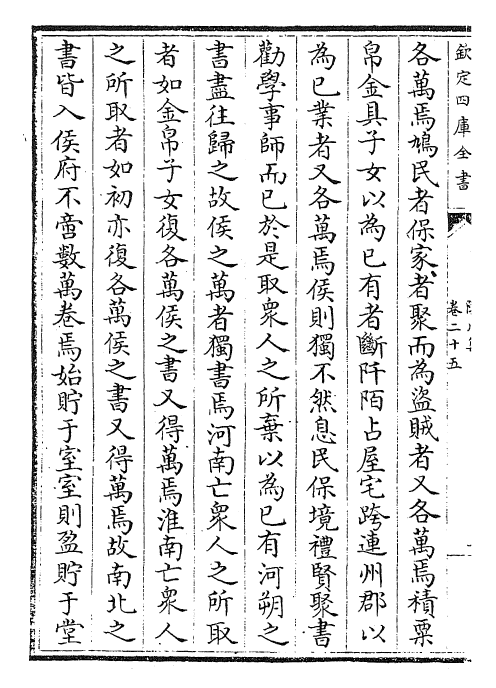 欽定四庫全書
卷二十五
各萬焉鳩民者保家者聚而為盜賊者又各萬焉積粟
帛金具子女以為已有者斷阡陌占屋宅跨連州郡以
為已業者又各萬焉侯則獨不然息民保境禮賢聚書
勸學事師而已於是取衆人之所棄以為已有河朔之
書盡往歸之故侯之萬者獨書焉河南亡衆人之所取
者如金帛子女復各萬侯之書又得萬焉淮南亡衆人
之所取者如初亦復各萬侯之書又得萬焉故南北之
書皆入侯府不啻數萬卷焉始貯于室室則盈貯于堂